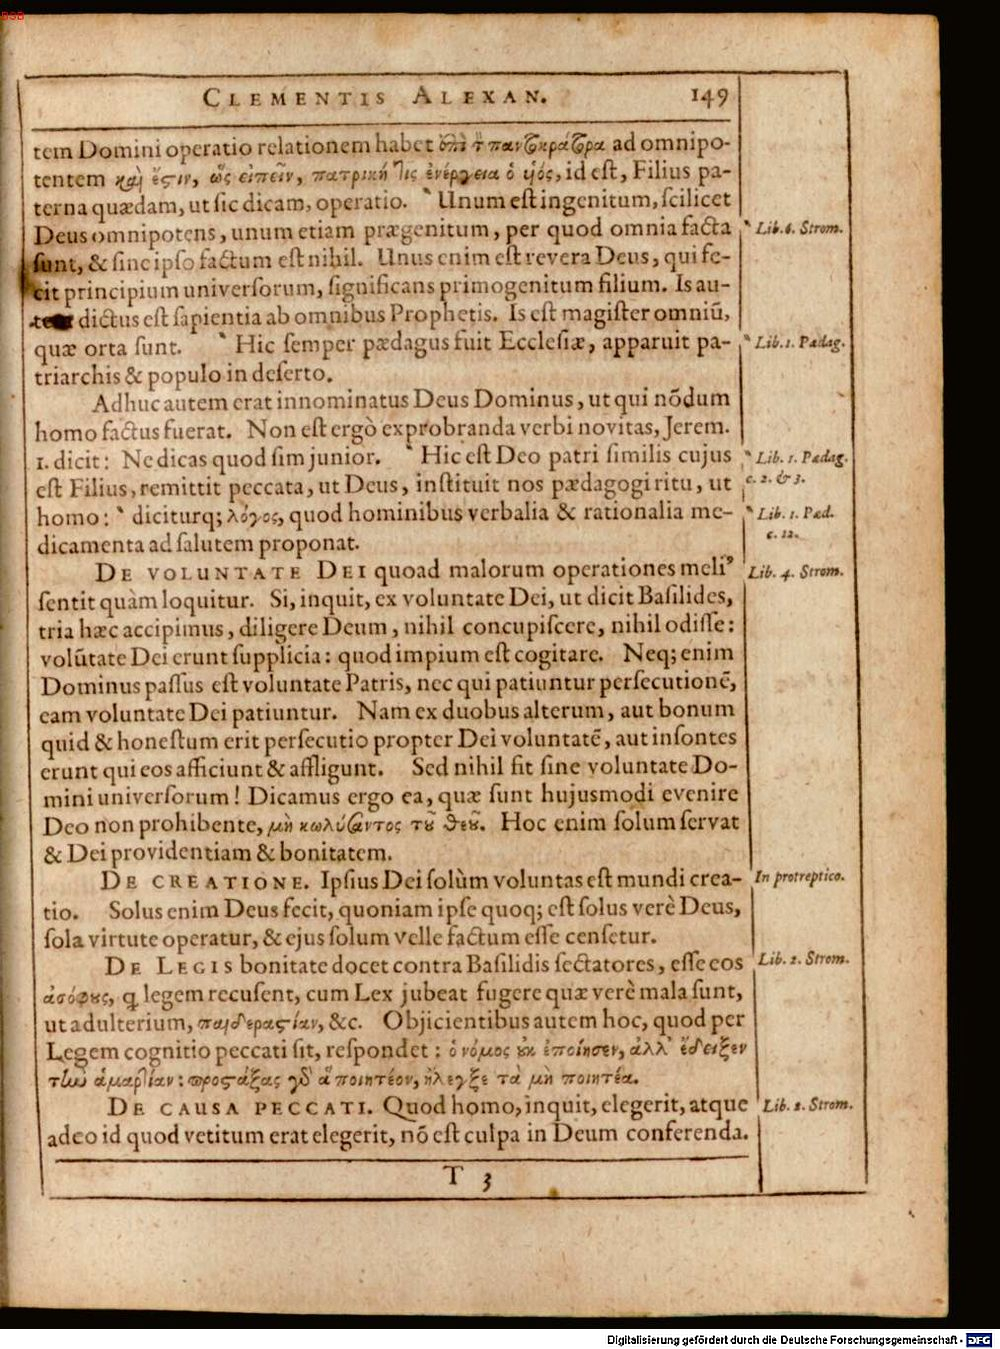 BSB
CLEMENTIS ALEXAN. 149
tem Domini operatio relationem habet ἐπὶ τ̃ παντοκράτορα ad omnipo-
tentem καὶ ἔςιν, ὡς εἰπεῖν, πατρική τις ἐνέργεια ὁ υἱός, id est, Filius pa-
terna quædam, ut sic dicam, operatio. ‵ Unum est ingenitum, scilicet
Deus omnipotens, unum etiam prægenitum, per quod omnia facta
‵ Lib. 6. Strom.
sunt, & sine ipso factum est nihil. Unus enim est revera Deus, qui fe-
cit principium universorum, significans primogenitum filium. Is au-
tem dictus est sapientia ab omnibus Prophetis. Is est magister omniũ,
quæ orta sunt. ‵ Hic semper pædagus fuit Ecclesiæ, apparuit pa-
‵ Lib. 1. Pædag.
triarchis & populo in deserto.
Adhuc autem erat innominatus Deus Dominus, ut qui nõdum
homo factus fuerat. Non est ergò exprobranda verbi novitas, Jerem.
1. dicit: Ne dicas quod sim junior. ‵ Hic est Deo patri similis cujus
‵ Lib. 1. Pædag.
est Filius, remittit peccata, ut Deus, instituit nos pædagogi ritu, ut
c. 2. & 3.
homo: ‵ diciturq; λόγος, quod hominibus verbalia & rationalia me-
‵ Lib. 1. Pæd.
dicamenta ad salutem proponat.
c. 12.
DE VOLUNTATE DEI quoad malorum operationes meli⁹
Lib. 4. Strom.
sentit quàm loquitur. Si, inquit, ex voluntate Dei, ut dicit Basilides,
tria hæc accipimus, diligere Deum, nihil concupiscere, nihil odisse:
volũtate Dei erunt supplicia: quod impium est cogitare. Neq; enim
Dominus passus est voluntate Patris, nec qui patiuntur persecutionẽ,
eam voluntate Dei patiuntur. Nam ex duobus alterum, aut bonum
quid & honestum erit persecutio propter Dei voluntatẽ, aut insontes
erunt qui eos afficiunt & affligunt. Sed nihil fit sine voluntate Do-
mini universorum! Dicamus ergo ea, quæ sunt hujusmodi evenire
Deo non prohibente, μὴ κωλύσαντος τοῦ θεοῦ. Hoc enim solum servat
& Dei providentiam & bonitatem.
DE CREATIONE. Ipsius Dei solùm voluntas est mundi crea-
In protreptico.
tio. Solus enim Deus fecit, quoniam ipse quoq; est solus verè Deus,
sola virtute operatur, & ejus solum velle factum esse censetur.
DE LEGIS bonitate docet contra Basilidis sectatores, esse eos
Lib. 2. Strom.
ἀσόφους, q legem recusent, cum Lex jubeat fugere quæ verè mala sunt,
ut adulterium, παιδεραςίαν, &c. Objicientibus autem hoc, quod per
Legem cognitio peccati sit, respondet: ὁ νόμος οὐκ ἐποίησεν, ἀλλ' ἔδειξεν
τὴν ἁμαρτίαν: προςάξας γὰρ ἃ ποιητέον, ἤλεγξε τὰ μὴ ποιητέα.
DE CAUSA PECCATI. Quod homo, inquit, elegerit, atque
Lib. 2. Strom.
adeo id quod vetitum erat elegerit, nõ est culpa in Deum conferenda.
T 3
Digitalisierung gefördert durch die Deutsche Forschungsgemeinschaft - DFG